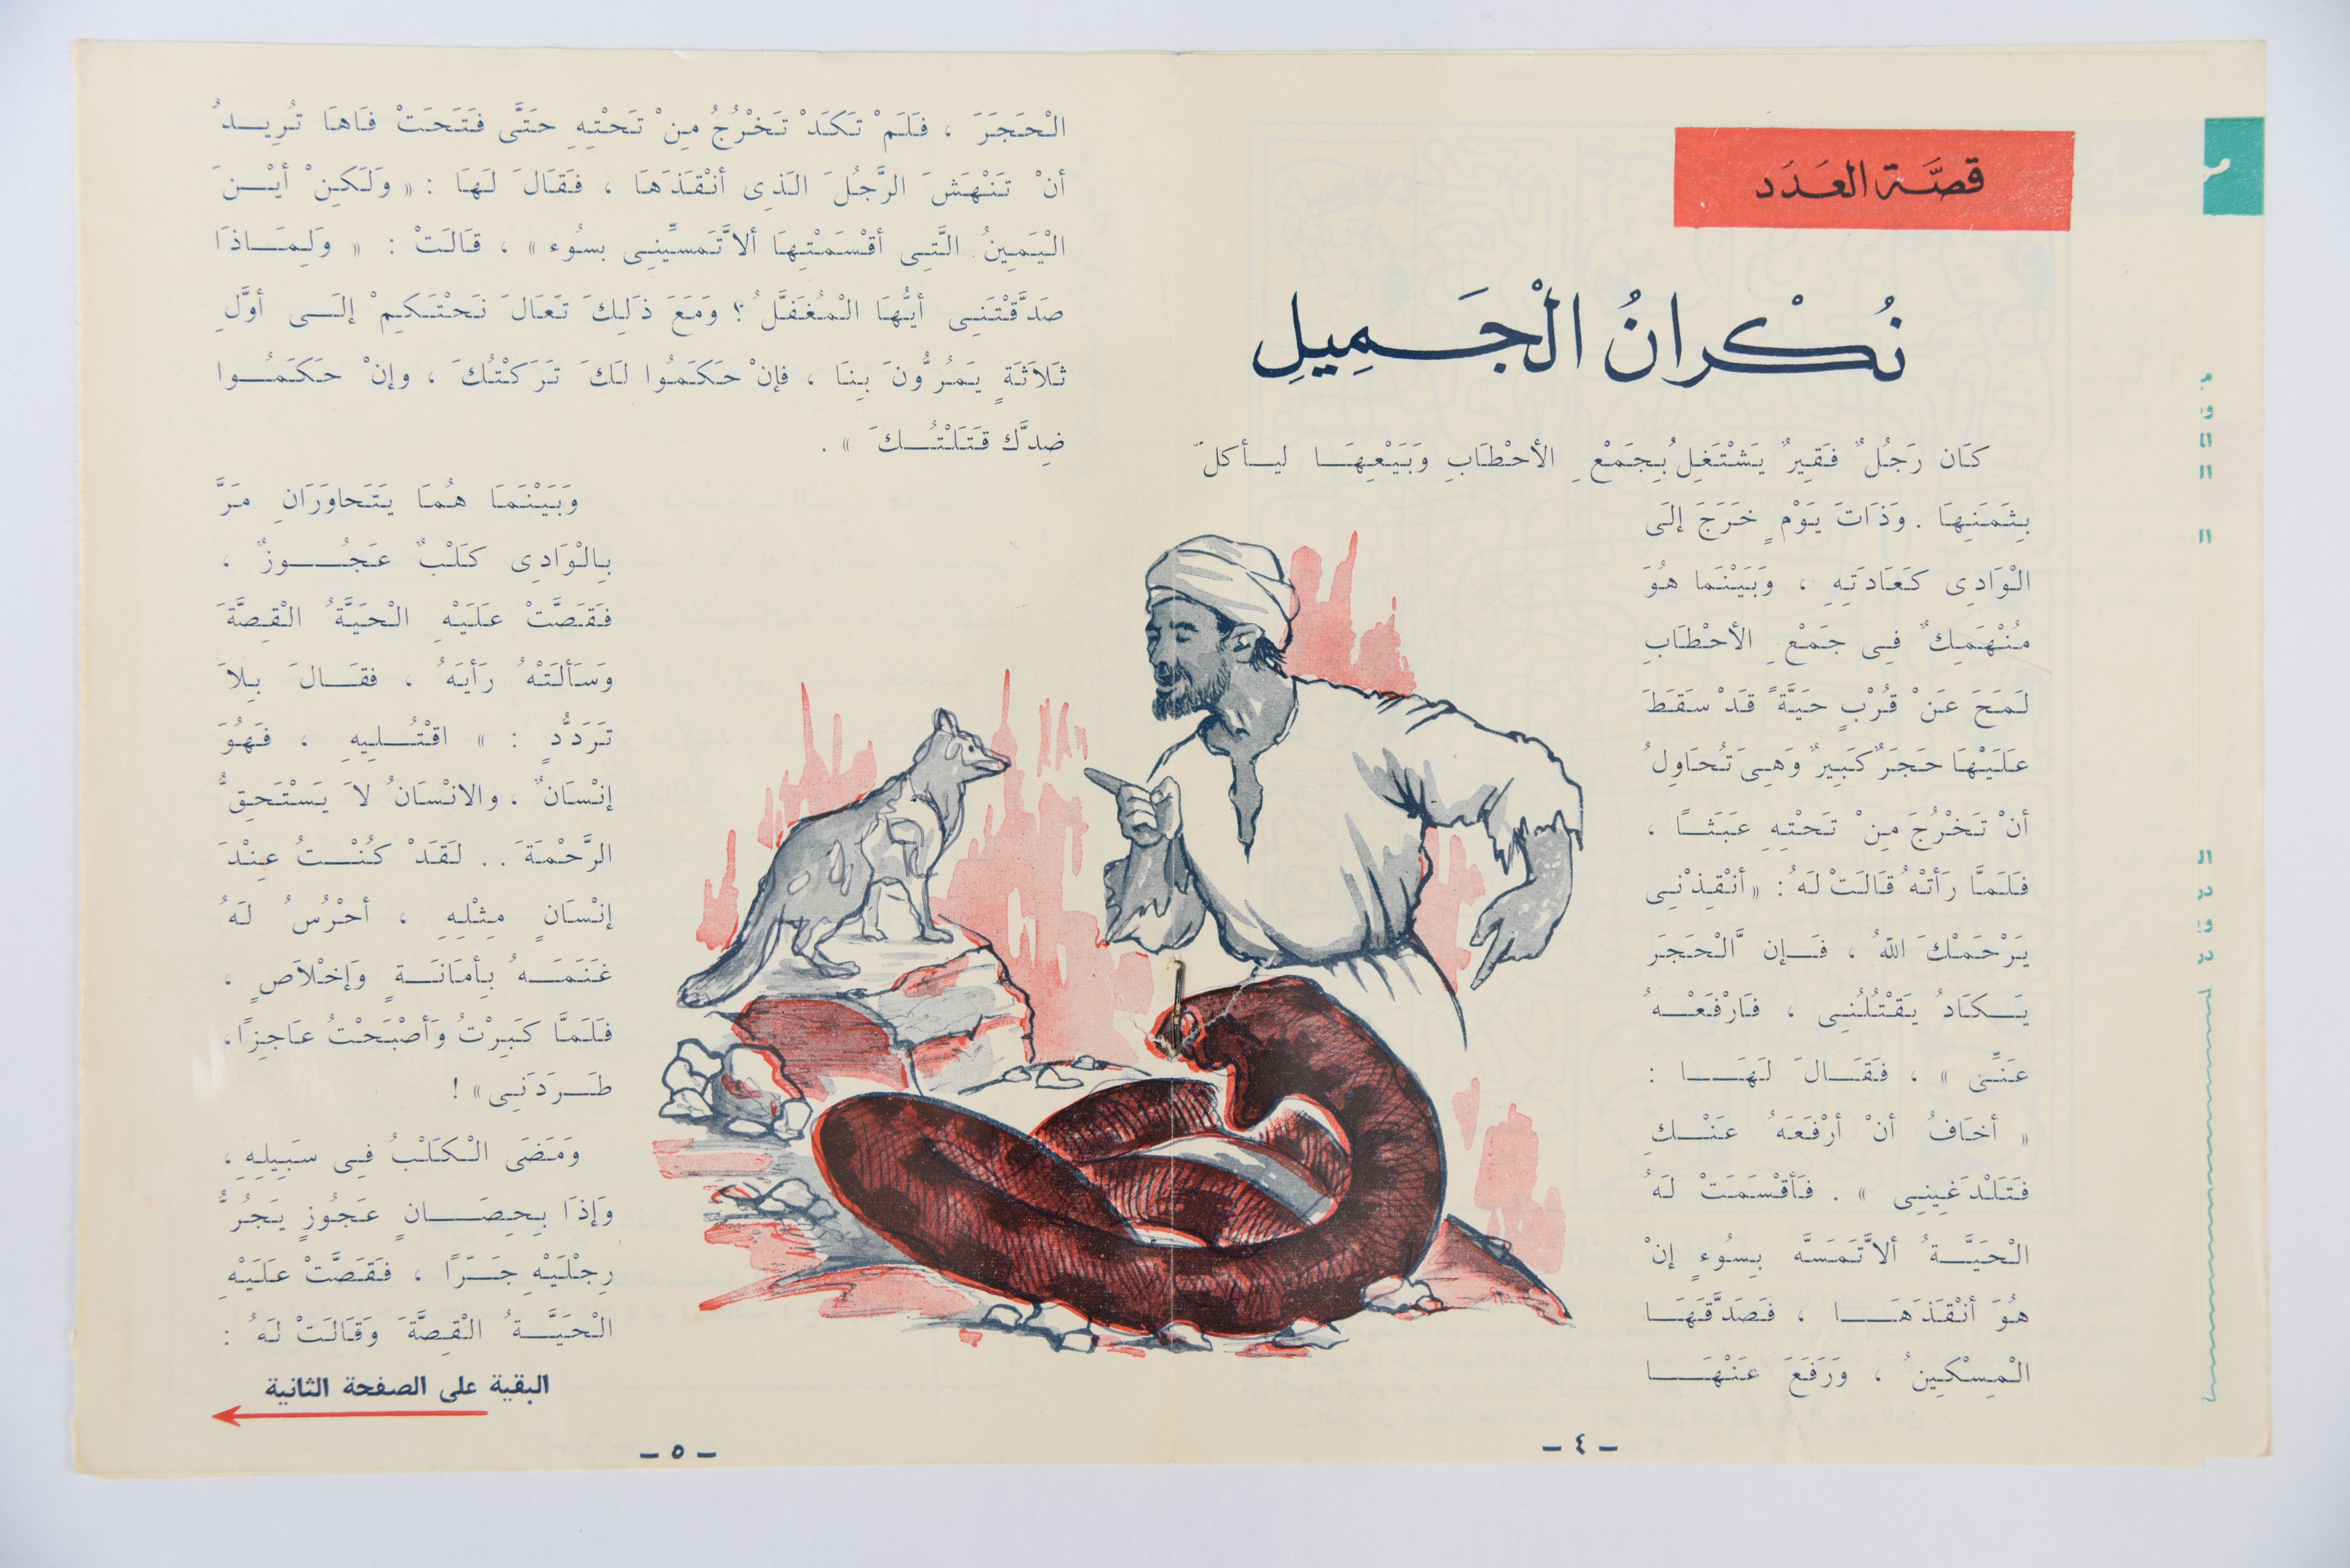 قصَّة العَدَد
نُكْرانُ الْجَمِيلِ
كَان رَجُلٌ فَقِيرٌ يَشْتَغِلُ بِجَمْعِ الأحْطَابِ وَبَيْعِهَا ليأكلّ
بِثَمَنِهَا . وَذَاتَ يَوْمٍ خَرَجَ إلَى
الْوَادِى كَعَادَتِهِ ، وَبَيْنَما هُوَ
مُنْهَمِكٌ فِى جَمْعِ الأحْطَابِ
لَمَحَ عَنْ قُرْبٍ حَيَّةً قَدْ سَقَطَ
عَلَيْهَا حَجَرٌ كَبِيرٌ وَهِىَ تُحَاوِلُ
أنْ تَخْرُجَ مِنْ تَحْتِهِ عَبَثًا ،
فَلَمَّا رَأتْهُ قَالَتْ لَهُ : « أنْقِذْنِى
يَرْحَمْكَ اللهُ ، فَإن َّالْحَجَرَ
يَكَادُ يَقْتُلُنِى ، فَارْفَعْهُ
عَنِّى » ، فَقَالَ لَهَا :
« أخَافُ أنْ أرْفَعَهُ عَنْكِ
فَتَلْدَغِينِى » . فَأقْسَمَتْ لَهُ
الْحَيَّةُ ألاَّتَمَسَّه بِسُوءٍ إنْ
هُوَ أنْقَذَهَا ، فَصَدَّقَهَا
الْمِسْكِينُ ، وَرَفَعَ عَنْهَا
- ٤ -
الْحَجَرَ ، فَلَمْ تَكَدْ تَخْرُجُ مِنْ تَحْتِهِ حَتَّى فَتَحَتْ فَاهَا تُرِيدُ
أنْ تَنْهَشَ الرَّجُلَ الَذِى أنْقَذَهَا ، فَقَالَ لَهَا : « وَلَكِنْ أيْنَ
الْيَمِينُ الَّتِى أقْسَمْتِهَا ألاَّتَمسِّينِى بسُوء » ، قَالَتْ : « وَلِمَاذَا
صَدَّقْتَنِى أيُّهَا الْمُغَفَّلُ ؟ وَمَعَ ذَلِكَ تَعَالَ نَحْتَكِمْ إلَى أوَّلِ
ثَلاَثَةٍ يَمُرُّونَ بِنَا ، فإنْ حَكَمُوا لَكَ تَرَكْتُكَ ، وإنْ حَكَمُوا
ضِدَّك قَتَلْتُكَ » .
وَبَيْنَمَا هُمَا يَتَحاوَرَانِ مَرَّ
بِالْوَادِى كَلْبٌ عَجُوزٌ ،
فَقَصَّتْ عَلَيْهِ الْحَيَّةُ الْقِصَّةَ
وَسَألَتْهُ رَأيَهُ ، فقَالَ بِلاَ
تَرَدُّدٍ : « اقْتُلِيهِ ، فَهُوَ
إنْسَانٌ ، والانْسَانُ لاَ يَسْتَحِقُّ
الرَّحْمَةَ . . لَقَدْ كُنْتُ عِنْدَ
إنْسَانٍ مِثْلِهِ ، أحْرُسُ لَهُ
غَنَمَهُ بِأمَانَةٍ وَإخْلاَصٍ ،
فَلَمَّا كَبِرْتُ وَأصْبَحْتُ عَاجِزًا،
طَرَدَنِى » !
وَمَضَى الْكَلْبُ فِى سَبِيلِهِ ،
وَإذَا بِحِصَانٍ عَجُوزٍ يَجُرُّ
رِجْلَيْهِ جَرّا ، فَقَصَّتْ عَلَيْهِ
الْحَيَّةُ الْقِصَّةَ وَقَالَتْ لَهُ :
البقية على الصفحة الثانية
- ٥ -